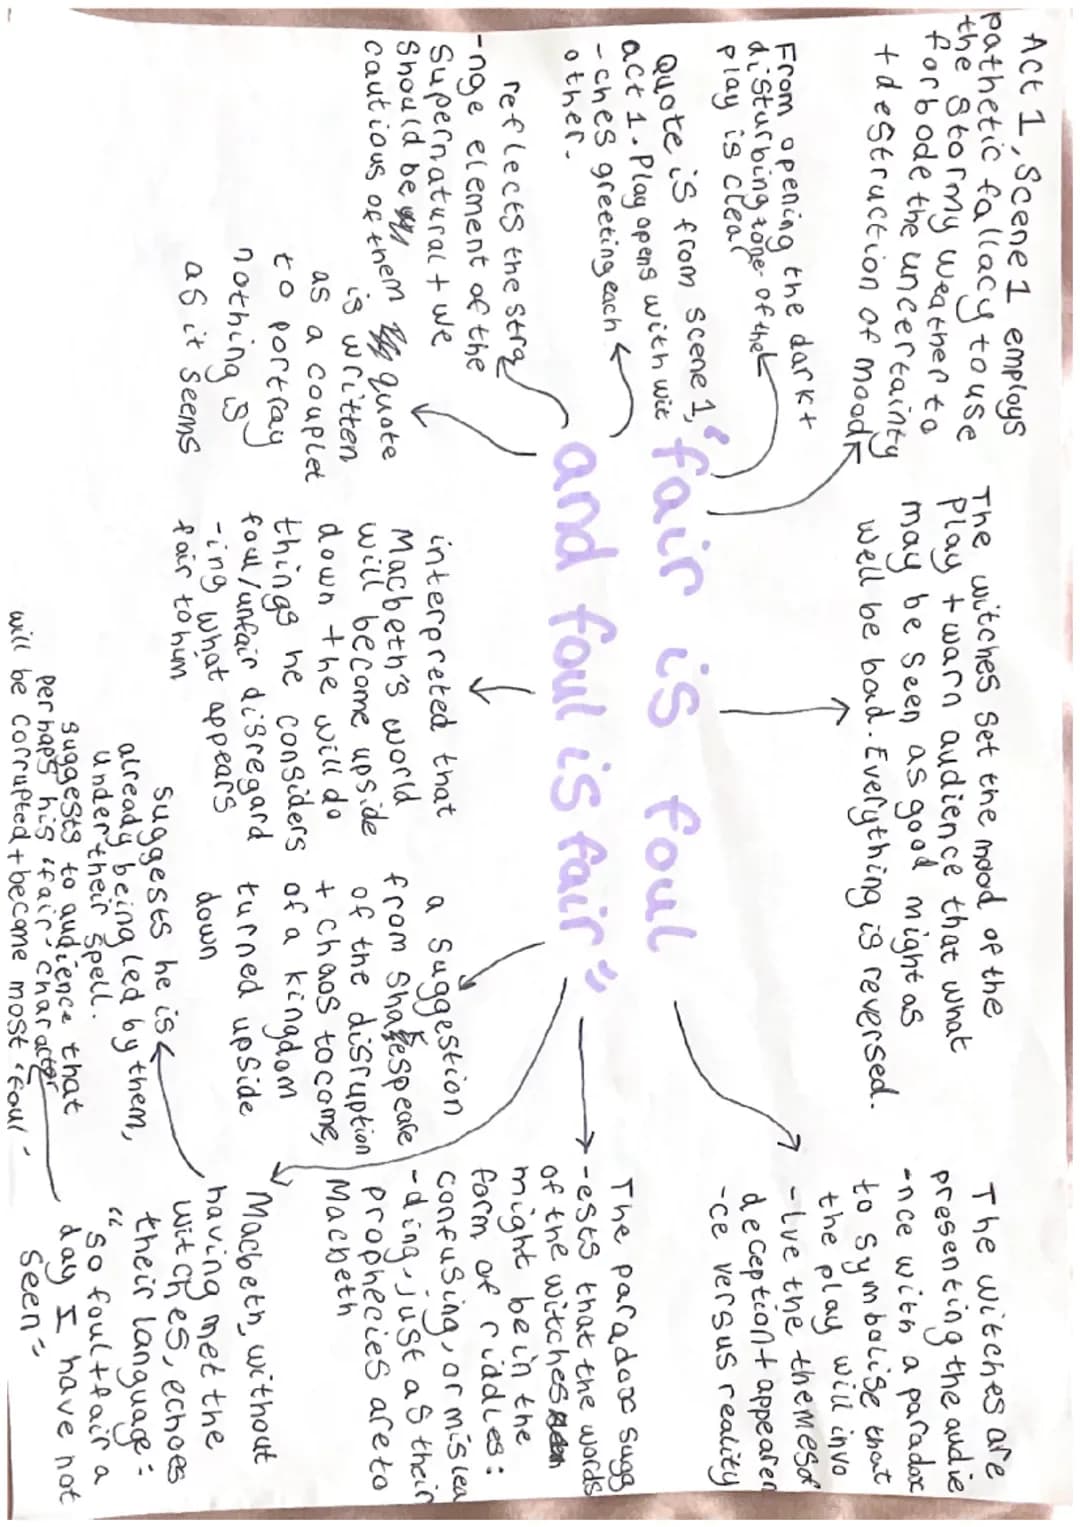 Act 1, Scene 1 employs
pathetic fallacy to use
the stormy weather to
forbode the uncertainty
+ destruction of mood
The witches set the mood of the
Play + warn audience that what
may be seen as good might as
well be bad. Everything is reversed.
The witches are
presenting the audie
-nce with a paradox
to symbolise that
the play will invo
-lve the themes of
deception + appearen
-ce versus reality
From opening the dark +
disturbing tone of the
play is clear
Quote is from scene 1,
act 1. Play opens with wit
-ches greeting each
other.
"fair is foul
and foul is fair"
The paradox sugg
-ests that the words
of the witches
might be in the
form of riddles:
confusing, or mislea
-ding, just as their
prophecies are to
Macbeth
reflects the stra
-nge element of the
Supernatural + we
should be
cautious of them
quote
is written
as a couplet
to portray
nothing is
as it seems
interpreted that
Macbeth's world
will become upside
down + he will do
things he considers
foul/unfair disregard
-ing what appears
fair to him
a suggestion
from Shakespeare
of the disruption
+ chaos to come,
of a kingdom
turned upside
down
Macbeth, without
having met the
witches, echoes
their language:
"so foul + fair a
day I have not
seen"
Suggests he is
already being led by them,
under their spell.
suggests to audience that
perhaps his 'fair' character
will be corrupted + become most 'foul'